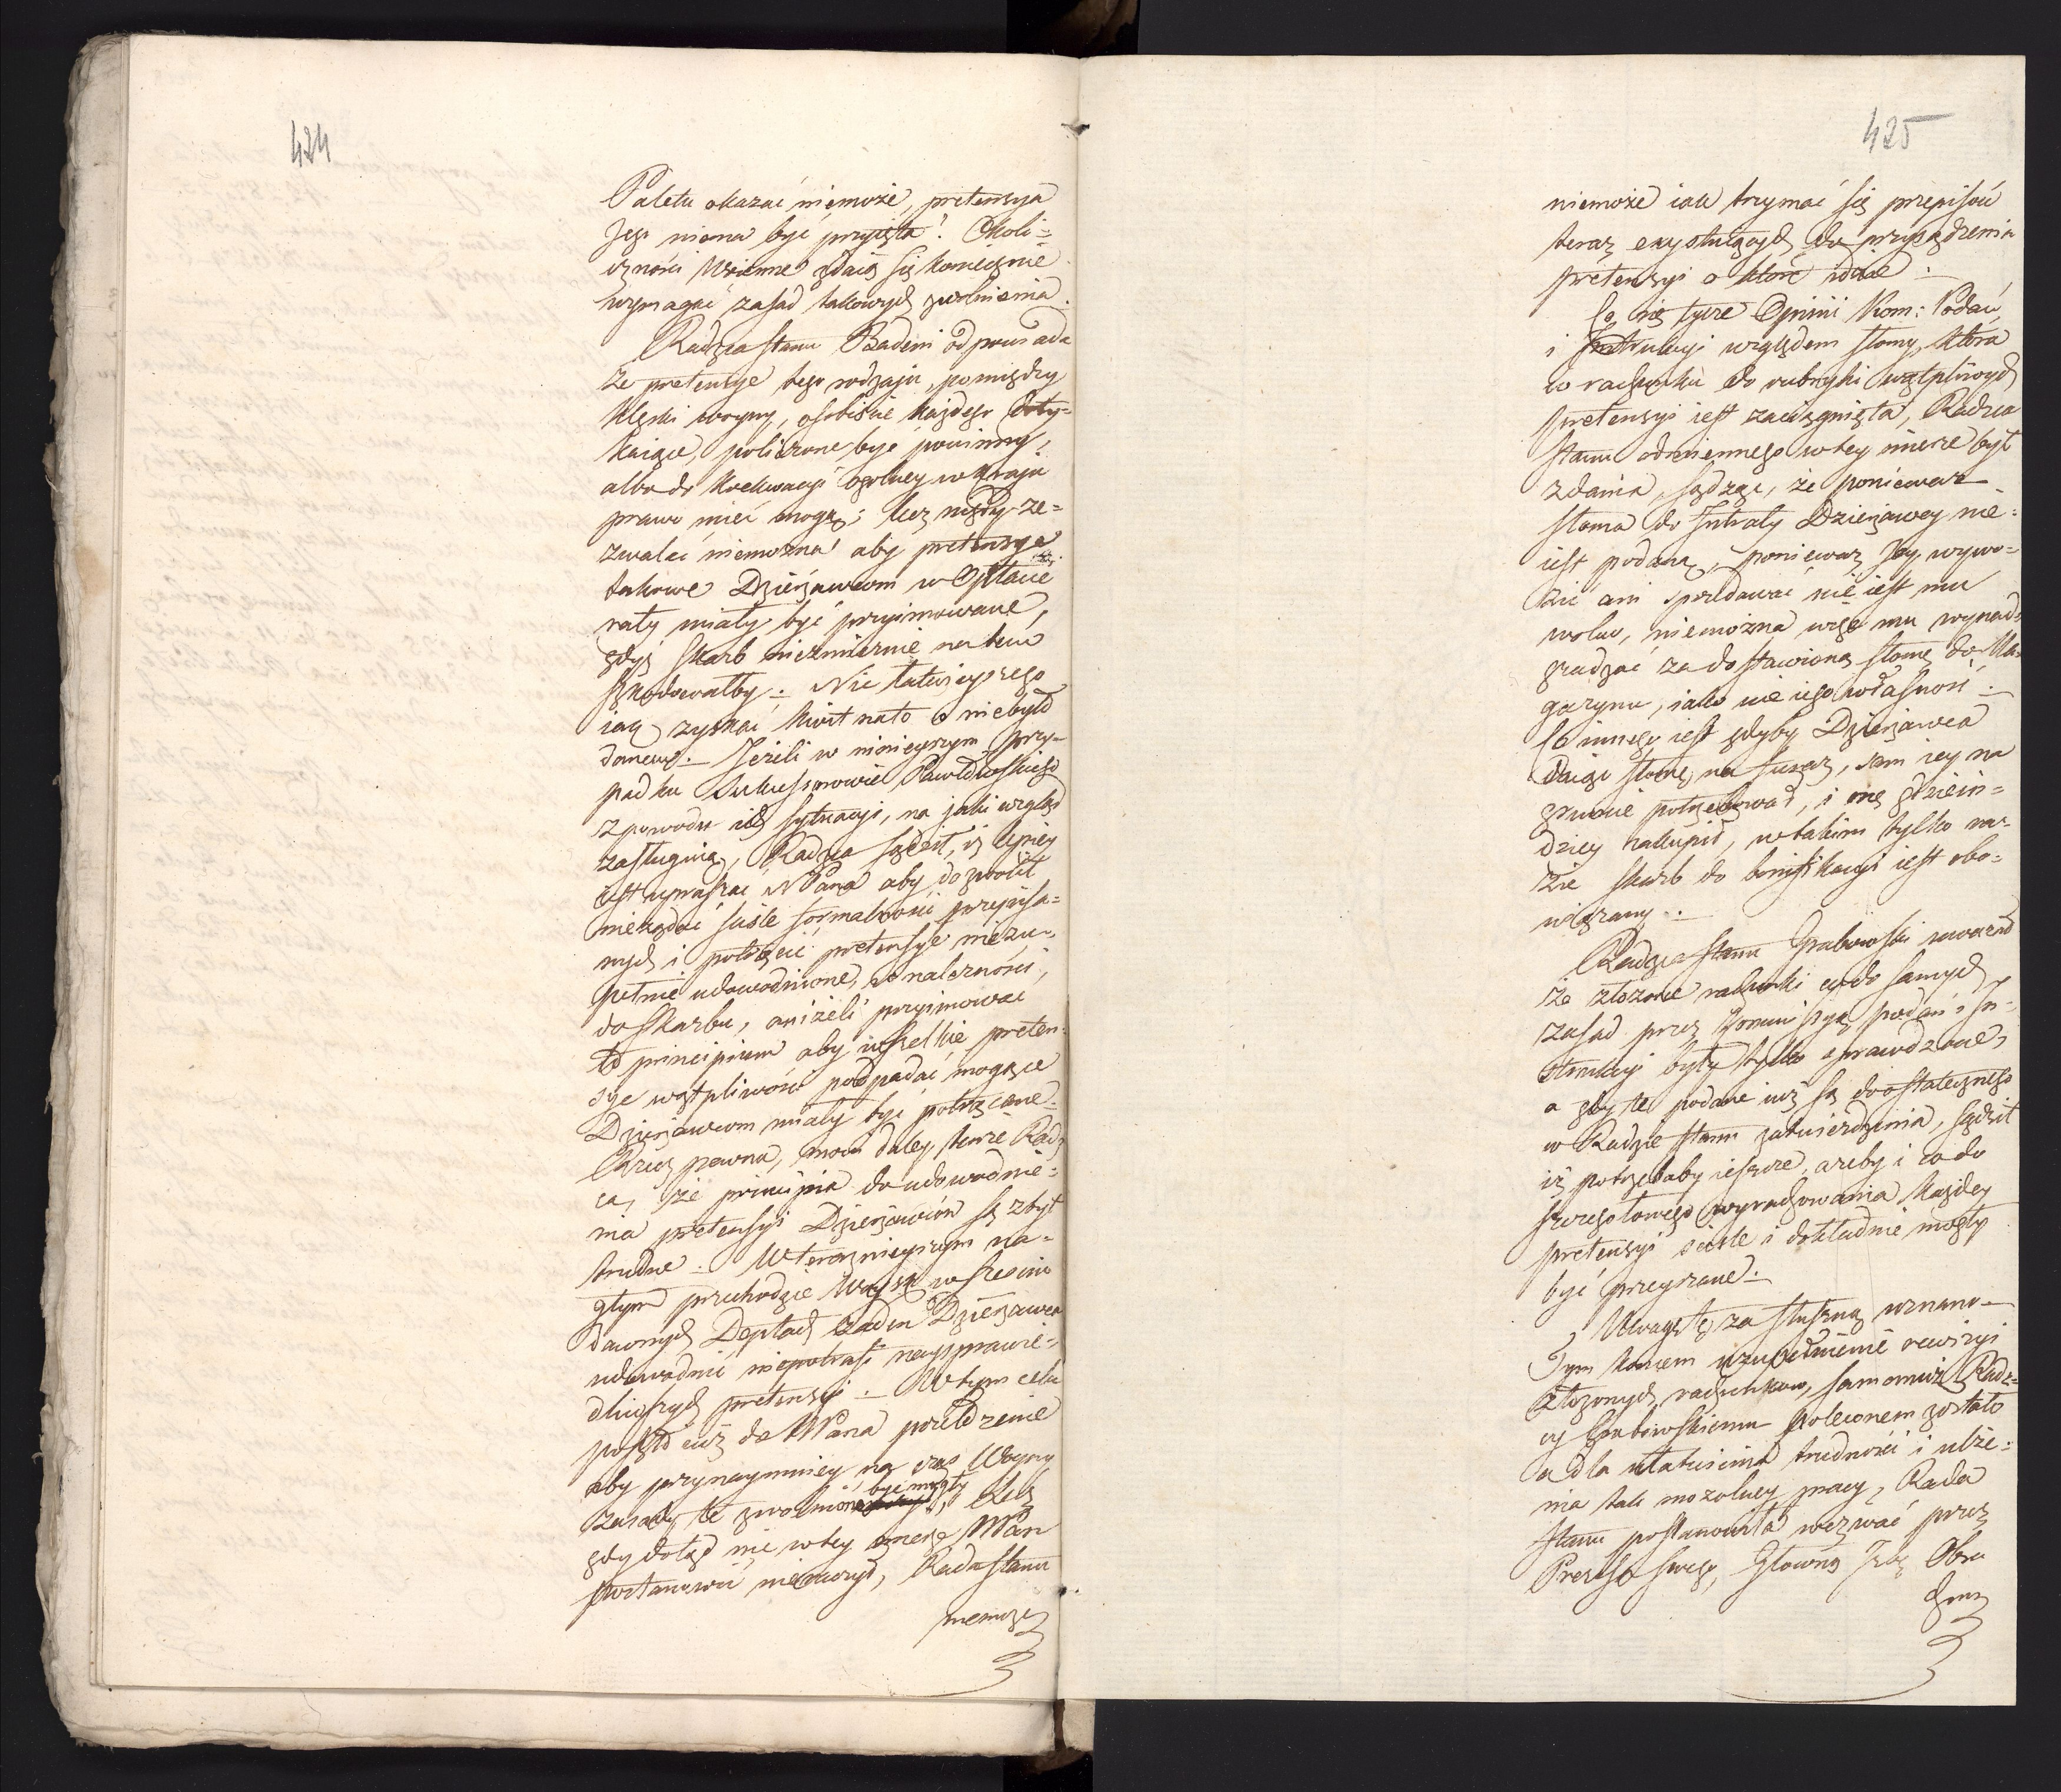 424
Paletu okazać niemoże, pretensya
Jego niema być przyięta. Okoli=
czności Woienne zdaią się koniecznie
wymagać zasad takowych zwolnienia.
Radzca stanu Badeni odpowiada
że pretensye tego rodzaju, pomiędzy
klęski woyny, osobiście każdego doty=
kaiące, policzone być powinny,
albo do koekwacyi ogolney w kraju
prawo mieć mogą; lecz nigdy ze=
zwalać niemożna aby pretensye
takowe Dzierżawcom w Opłacie
raty miały być przyimowane,
gdyż skarb niezmiernie na tem
szkodowałby. Nic łatwieyszego
iak zyskać kwit na to co niebyło
danem. Jeżeli w ninieyszym przy=
padku Sukcessorowie Pawłowskiego
z powodu ich sytuacyi, na jaki wzgląd
zasługuią, Radzca sądził, iż lepiey
iest upraszać N Pana aby dozwolił
nieżądać ściśle formalności przepisa=
nych i potrącić pretensye niezu=
pełnie udowodnione, z należności
do skarbu, aniżeli przyimować
to principium aby wszelkie preten=
sye wątpliwości podpadać mogące
Dzierżawcom miały być potrącane.
Rzecz pewna, mowi daley tenże Radz
ca, że principia do udowodnie=
nia pretensyi Dzierżawców są zbyt
trudne. W teraznieyszym na=
głym przechodzie Woysk w sześciu
dawnych Deptach żaden Dzierżawca
udowodnić niepotrafi naysprawie=
dliwszych pretensyi. W tym celu
poszło iuż do N Pana przełożenie
aby przynaymniey na czas Woyny
zasady te zwolnione być mogły, Lecz
gdy dotąd nic w tey mierze N Pan
postanowić nieraczył, Rada Stanu
niemoże
425
niemoże iak trzymać się przepisów
teraz exystuiących do przysądzenia
pretensyi o które idzie.
Co się tycze Opinii Kom: Podań
i Instrukcyi względem słomy, która
w rachunku do rubryki wątpliwych
pretensyi iest zaciągnięta, Radzca
stanu odmiennego w tey mierze był
zdania, sądząc, że ponieważ
słoma do Intraty Dzierżawey nie=
iest podana, ponieważ Jey wywo=
zić ani sprzedawać nie iest mu
wolno, niemożna więc mu wynad=
gradzać za dostawioną słomę do Ma=
gazynu, iako nie iego własność.
Co innego iest gdyby Dzierżawca
daiąc słomę na furaż, sam iey na
gruncie potrzebował, i onę gdziein=
dziey zakupił, w takim tylko ra=
zie skarb do bonifikacyi iest obo=
wiązany.
Radzca stanu Grabowski uważał
że złożone rachunki co do samych
zasad przez Kommissyą podań i In=
strukcyi były tylko sprawdzane,
a gdy te podane iuż są do ostatecznego
w Radzie stanu zatwierdzenia, sądził
iż potrzebaby ieszcze, ażeby i co do
szczegołowego wyrachowania każdey
pretensyi ściśle i dokładnie mogły
być przeyrzane.
Uwagę tę za słuszną uznano.
Tym końcem uzupełnienie rewizyi
złożonych rachunków, samemuż Radz=
cy Grabowskiemu poleconem zostało
a dla ułatwienia trudności i ulże=
nia tak mozolney pracy, Rada
Stanu postanowiła wezwać przez
Prezesa swego, Głowną Izbę Obra
chun